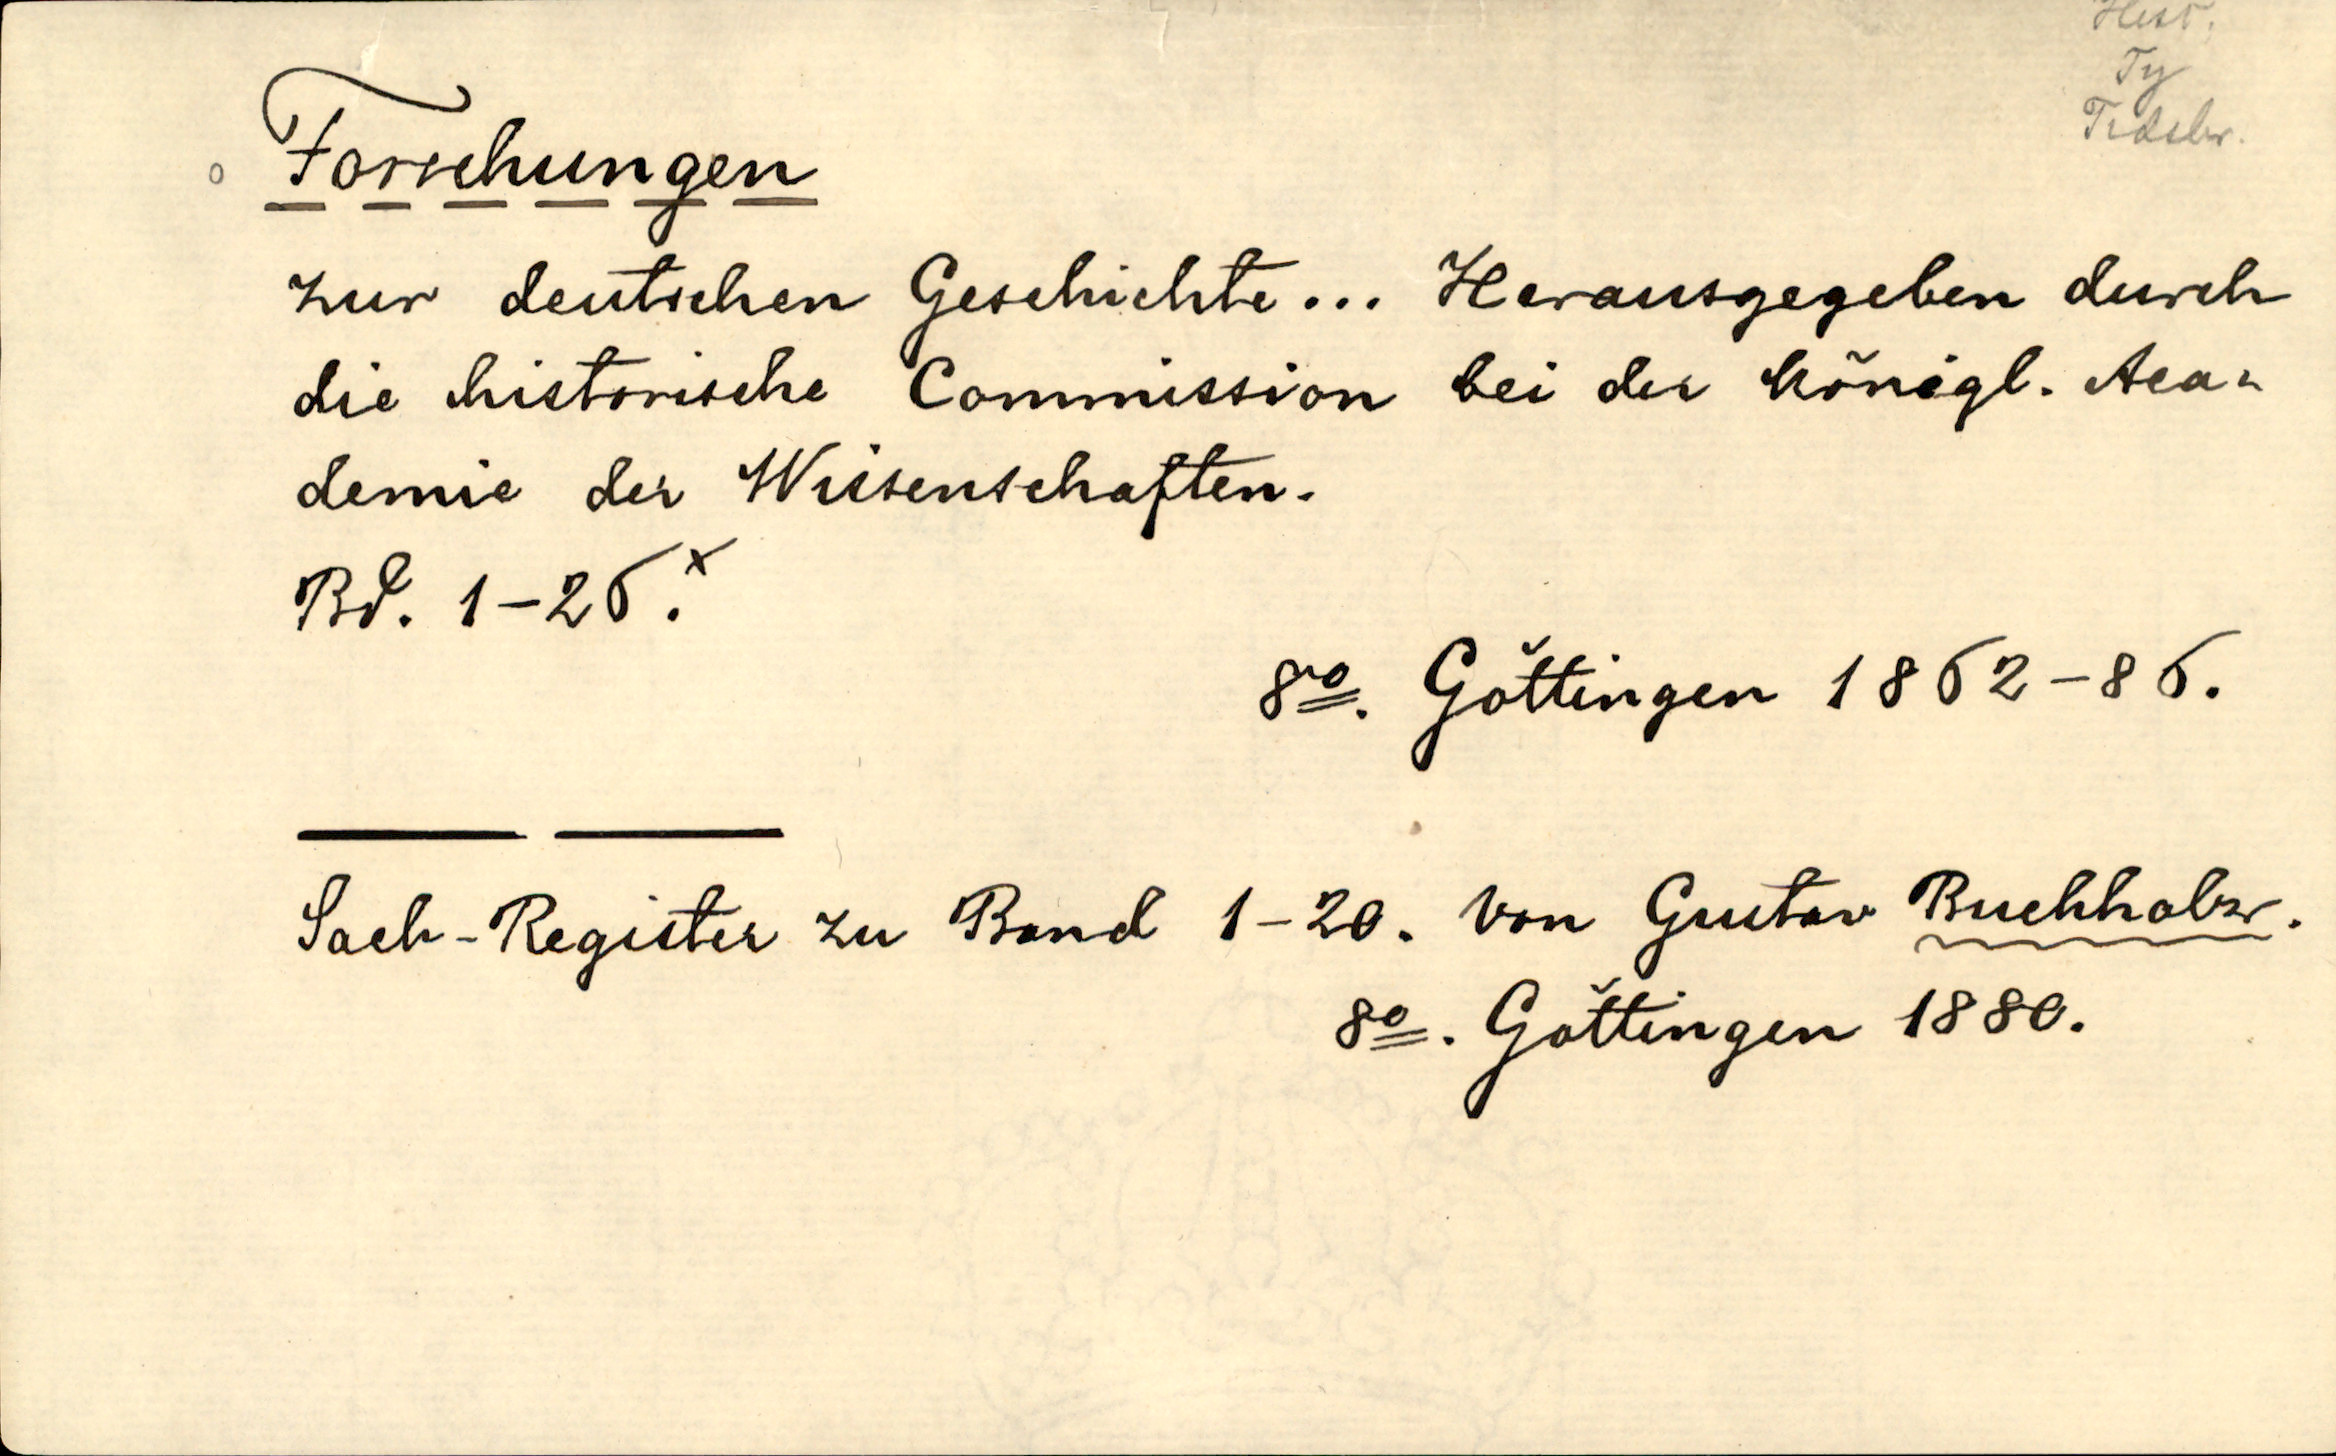 Hist.
Ty
Tidskr.
Forschungen
zur deutschen Geschichte... Herausgegeben durch
die historische Commission bei der königl. Aca-
demie der Wissenschaften.
Bd. 1-26.x
8vo. Göttingen 1862-86.
Sach-Register zu Band 1-20. Von Gustav Buchholz.
8o. Göttingen 1880.